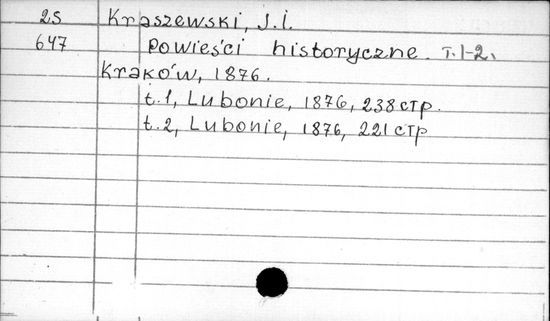 25 Kraszewski, J.I.
647 Powieści historyczne. T.1-2.
Kraków, 1876.
t.1, Lubonie, 1876, 238 стр.
t.2, Lubonie, 1876, 221 стр